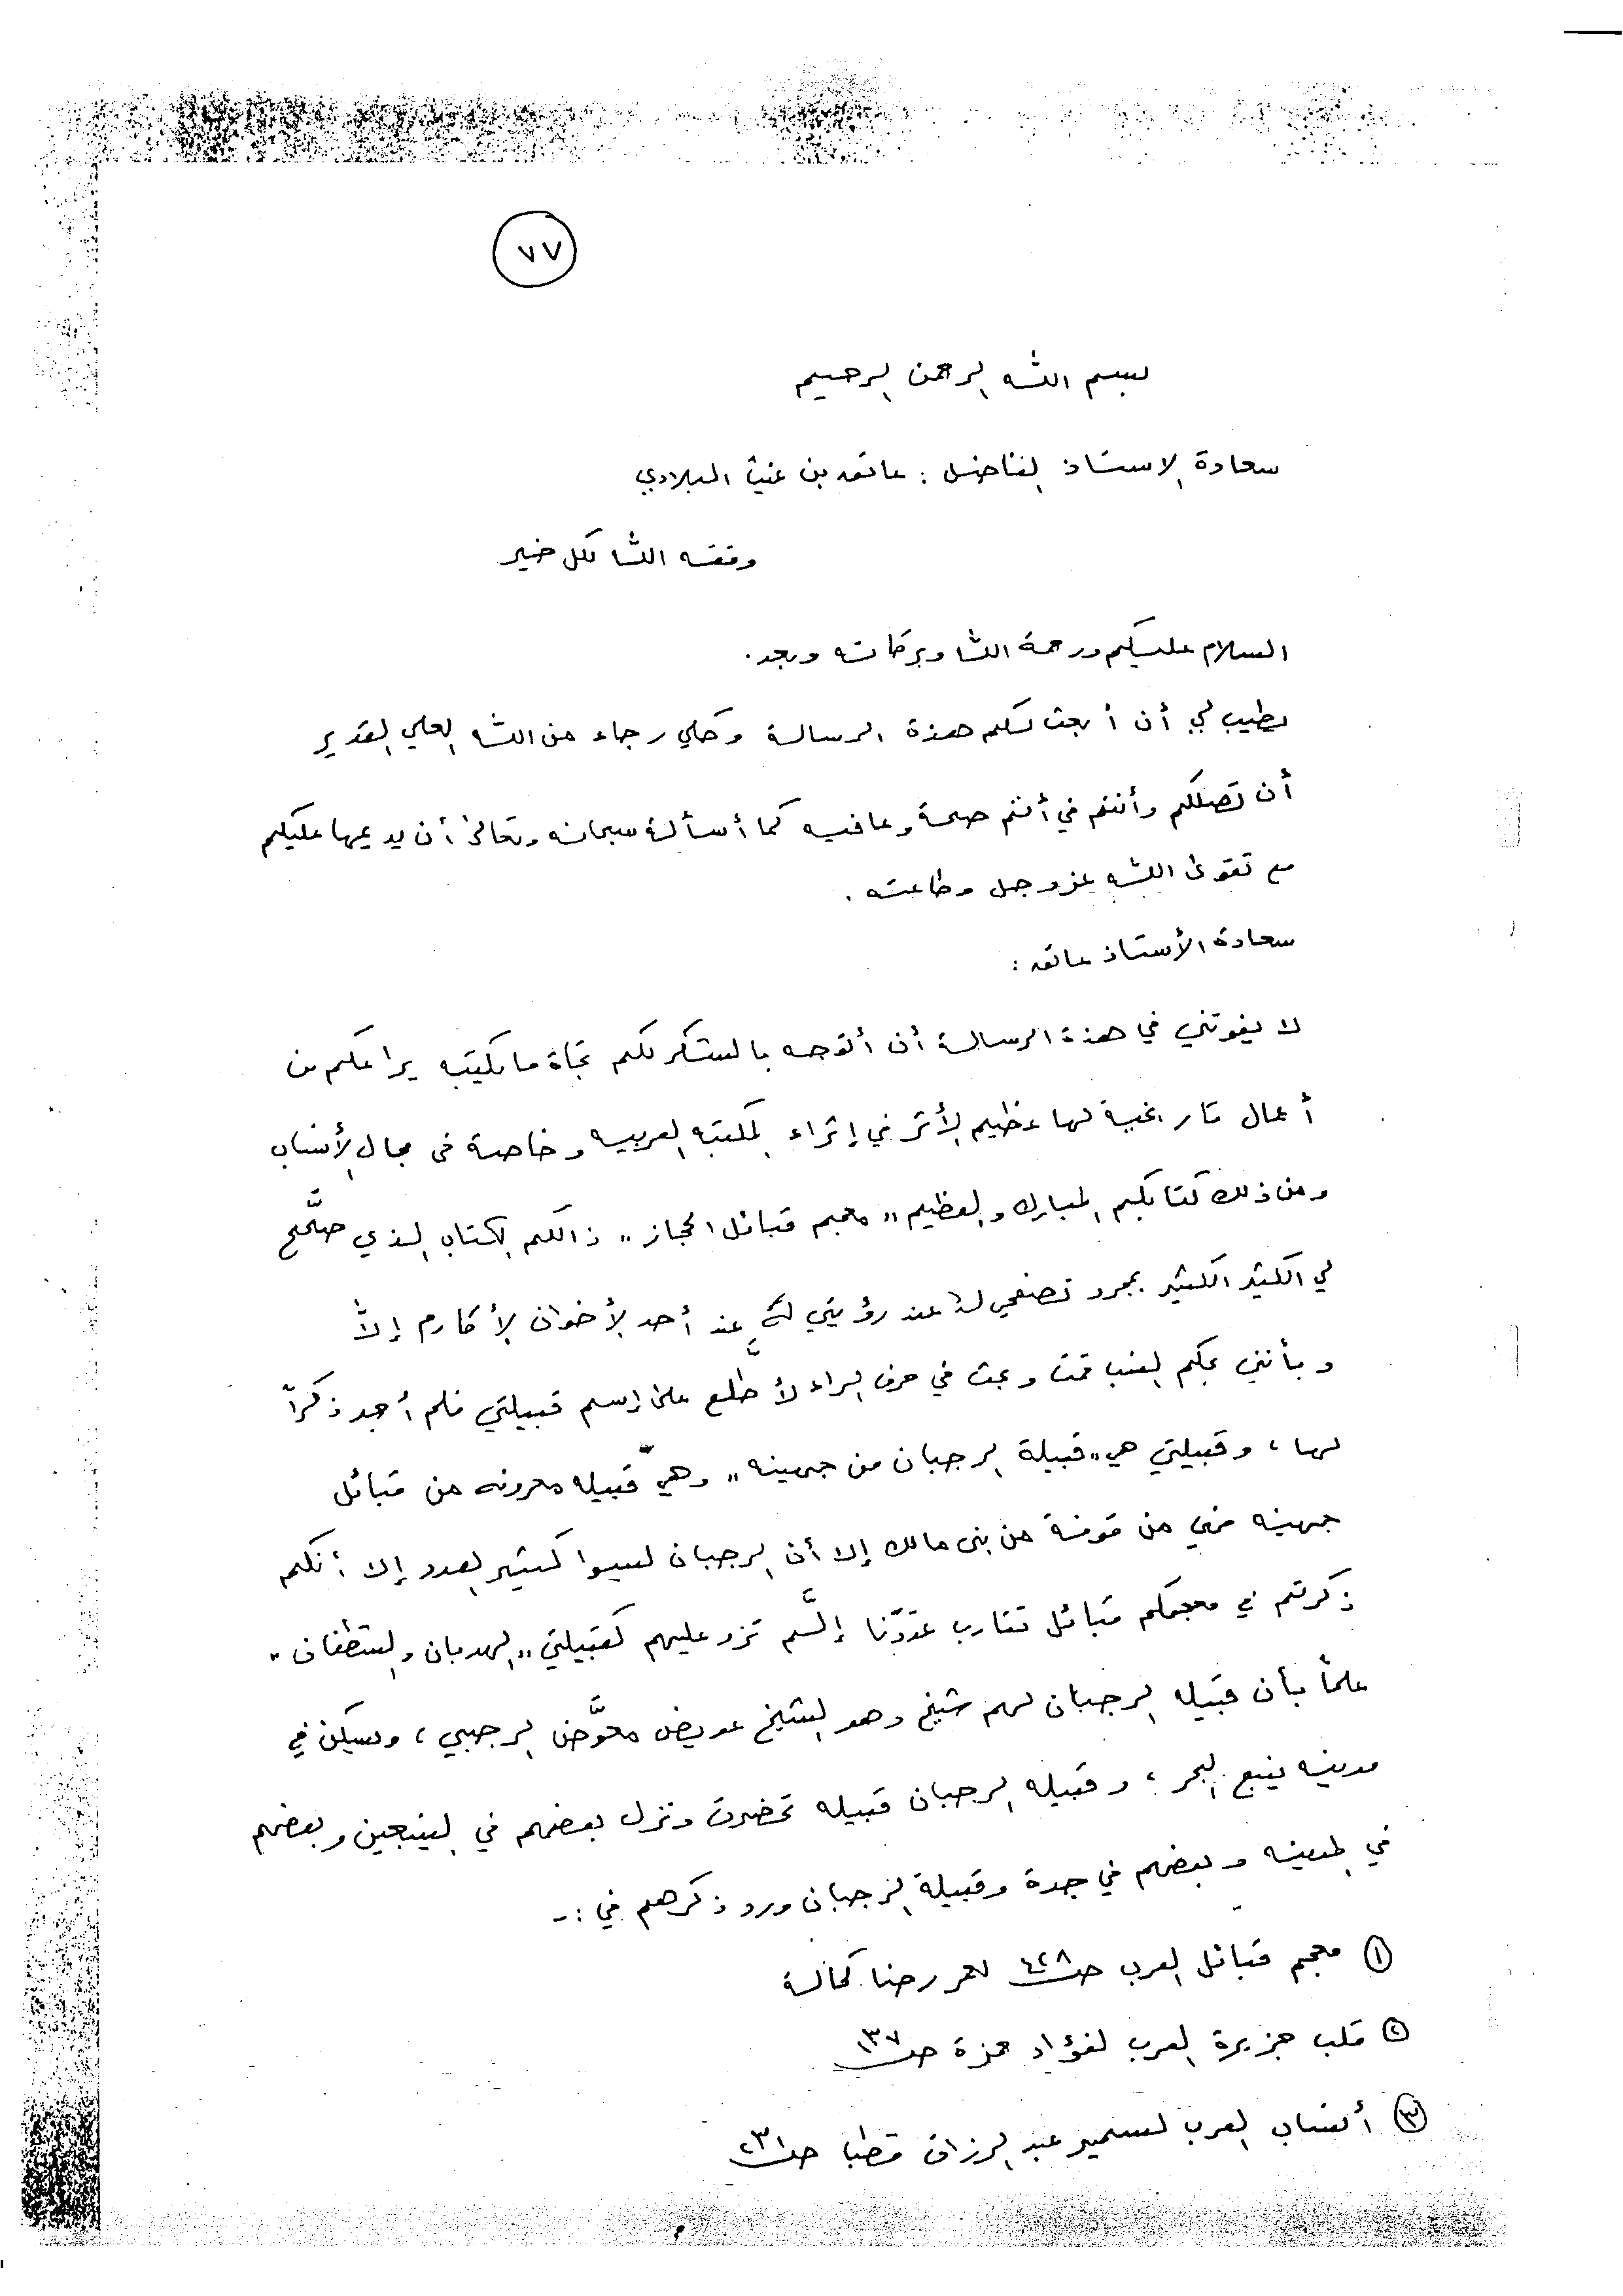 ٧٧
بسم الله الرحمن الرحيم
سعادة الاستاذ الفاضل : عاتق بن غيث البلادي
وفقه الله لكل خير
السلام عليكم ورحمة الله وبركاته وبعد .
يطيب لي أن أبعث لكم هذة الرسالة وكلي رجاء من الله العلي القدير
أن تصلكم وأنتم في أتم صحة وعافيه كما أسألة سبحانه وتعالى أن يديمها عليكم
مع تقوى الله عز وجل وطاعته .
سعادة الأستاذ عاتق :
لا يفوتني في هذة الرسالة أن أتوجه بالشكر لكم تجاة ما يكتبه يراعكم من
أعمال تاريخية لها عظيم الأثر في إثراء المكتبه العربيه وخاصة في مجال الأنساب
ومن ذلك كتابكم المبارك والعظيم " معجم قبائل الحجاز " ذالكم الكتاب الذي صحَّح
لي الكثير الكثير بمجرد تصفحي لة عند رؤيتي لة عند أحد الأخوان الأكارم إلاَّ
وبأنني بحكم النسب قمت وبحث في حرف الراء لأطَّلع على إسم قبيلتي فلم أجد ذكراً
لها ، وقبيلتي هي " قبيلة الرجبان من جهينه " وهي قبيله معروفه من قبائل
جهينه فهي من قوفة من بني مالك إلا أن الرجبان ليسوا كثير العدد إلا أنكم
ذكرتم في معجمكم قبائل تقارب عددنا إلَّم تزد عليهم كقبيلتي " الهدبان والشطفان "
علماً بأن قبيله الرجبان لهم شيخ وهو الشيخ عويض معوَّض الرجبي ، ويسكن في
مدينه ينبع البحر ، وقبيله الرجبان قبيله تحضرت ونزل بعضهم في الينبعين وبعضهم
في المدينه وبعضهم في جدة وقبيلة الرجبان ورد ذكرهم في :-
① معجم قبائل العرب صـ ٤٢٨ لعمر رضا كحالة
② قلب جزيرة العرب لفؤاد حمزة صـ ١٣٧
③ أنساب العرب لسمير عبد الرزاق قطب صـ